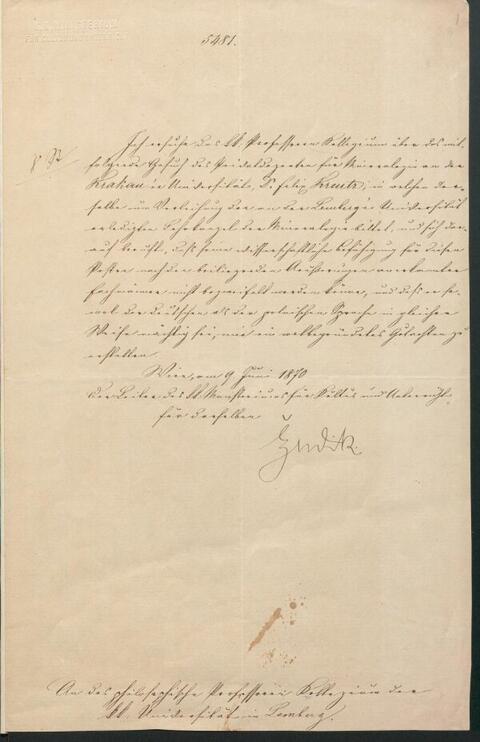 5481.
Ich ersuche das kk. Professoren Kollegium über das mit-
folgende Gesuch des Privatdozenten für Mineralogie an der
Krakauer Universität, Dr. Felix Kreutz, in welchem der-
selbe um Verleihung der an der Lemberger Universität
erledigten Lehrkanzel der Mineralogie bittet, und sich dar-
auf beruft, daß seine wissenschaftliche Befähigung für diesen
Posten nach den beiliegenden Äußerungen anerkannter
Fachmänner nicht bezweifelt werden könne, und daß er so-
wol der deutschen als der polnischen Sprache in gleicher
Weise mächtig sei, mir ein wolbegründetes Gutachten zu
erstatten.
Wien, am 9. Juni 1870
Der Leiter des kk. Ministeriums für Kultus und Unterricht
für denselben
An das philosophische Professoren Kollegium der
kk. Universität in Lemberg.